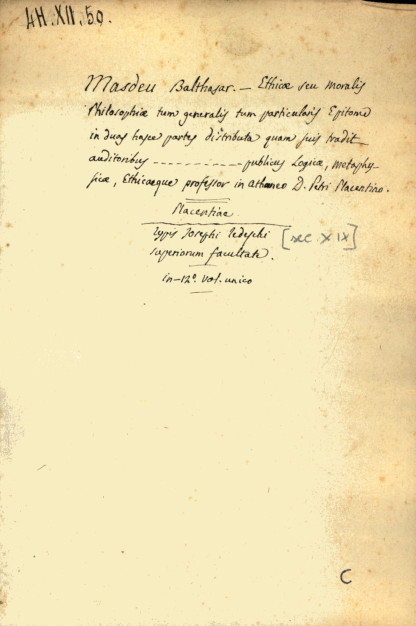 4H.XII.50.
Masdeu Balthasar. — Ethicæ seu moralis
Philosophiæ tum generalis tum particularis Epitome
in duas hasce partes distributa quam suis tradit
auditoribus ---------- publicus Logicæ, metaphy-
sicæ, Ethicæque professor in Athenæo D. Petri Placentino.
Placentiæ
typis Josephi Tedeschi [sec XIX]
superiorum facultate.
in-12°. vol. unico
C